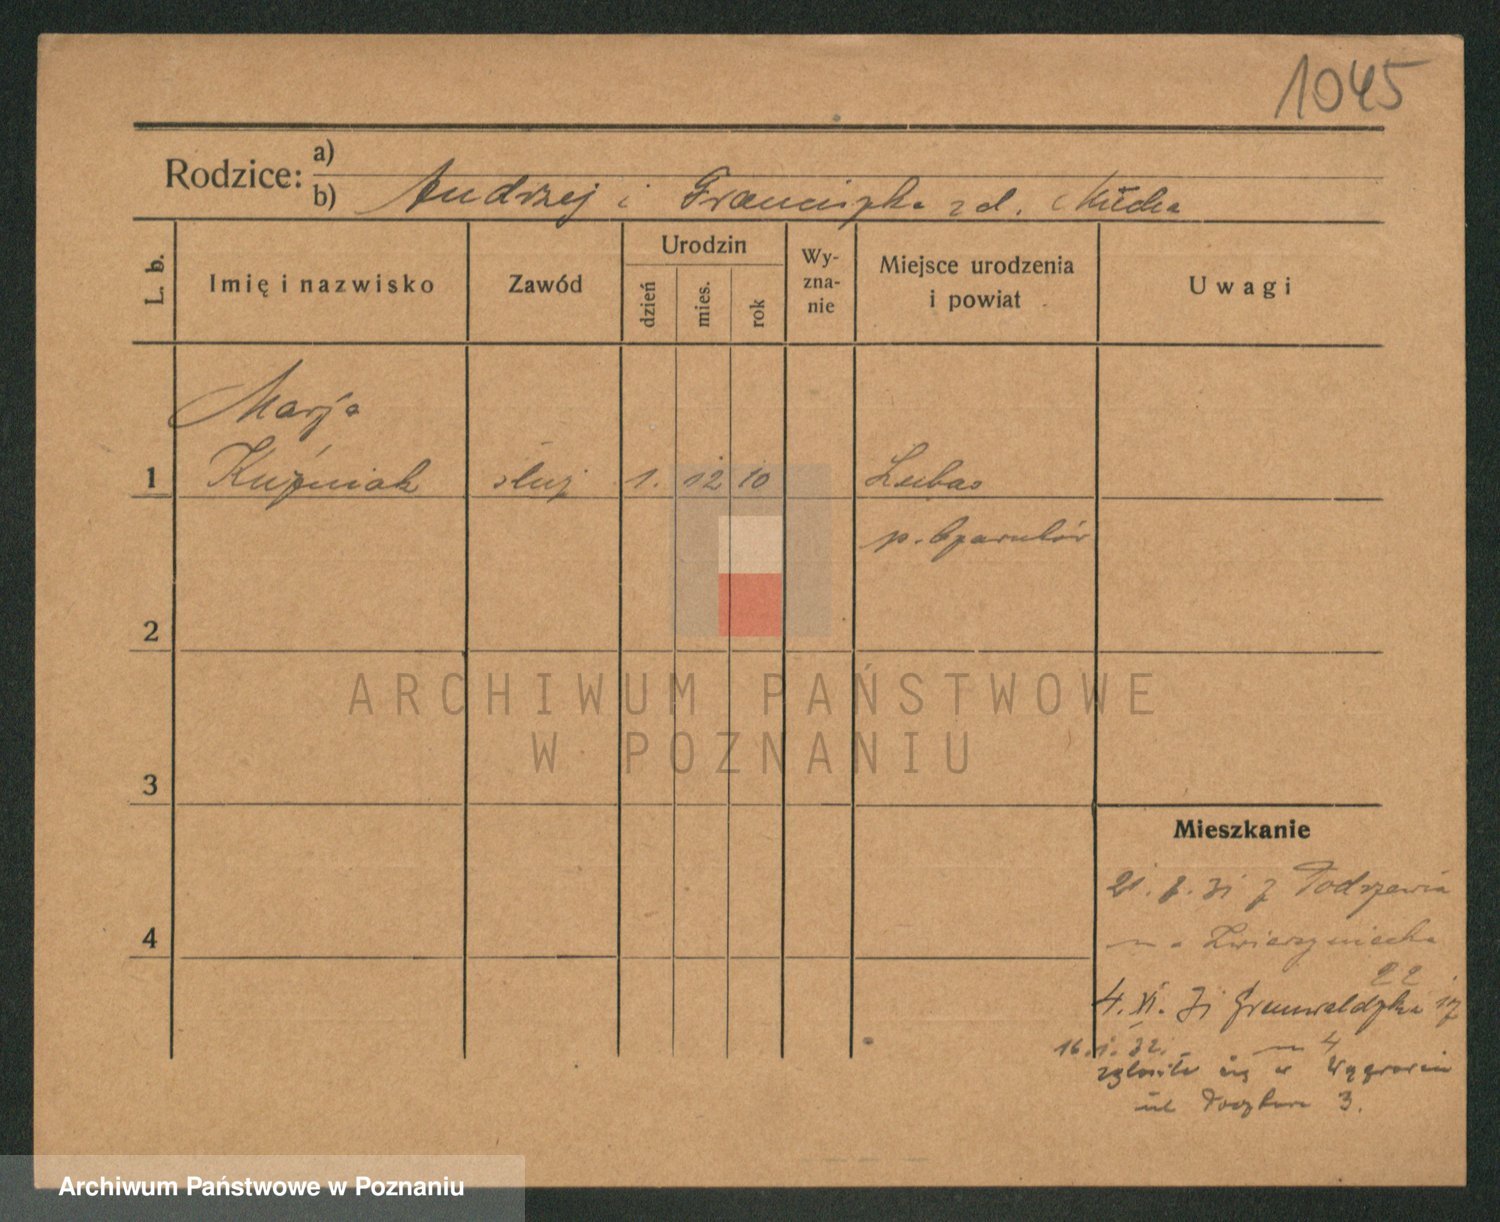 1045
Rodzice: a)
b) Andrzej i Franciszka zd. Mucha
L. b.
Imię i nazwisko
Zawód
Urodzin
dzień
mies.
rok
Wy-
zna-
nie
Miejsce urodzenia
i powiat
Uwagi
Marja
1 Kuźniak służ 1. 12 10 Lubas
p. Czarnków
2
3
4
Mieszkanie
21. 31 z
Zwierzyniecka
22
4. XI. 31 Grunwaldzka
16. 1. 32. m 4
zgłosiła się w Wągrowcu
ul 3.
ARCHIWUM PAŃSTWOWE
W POZNANIU
Archiwum Państwowe w Poznaniu